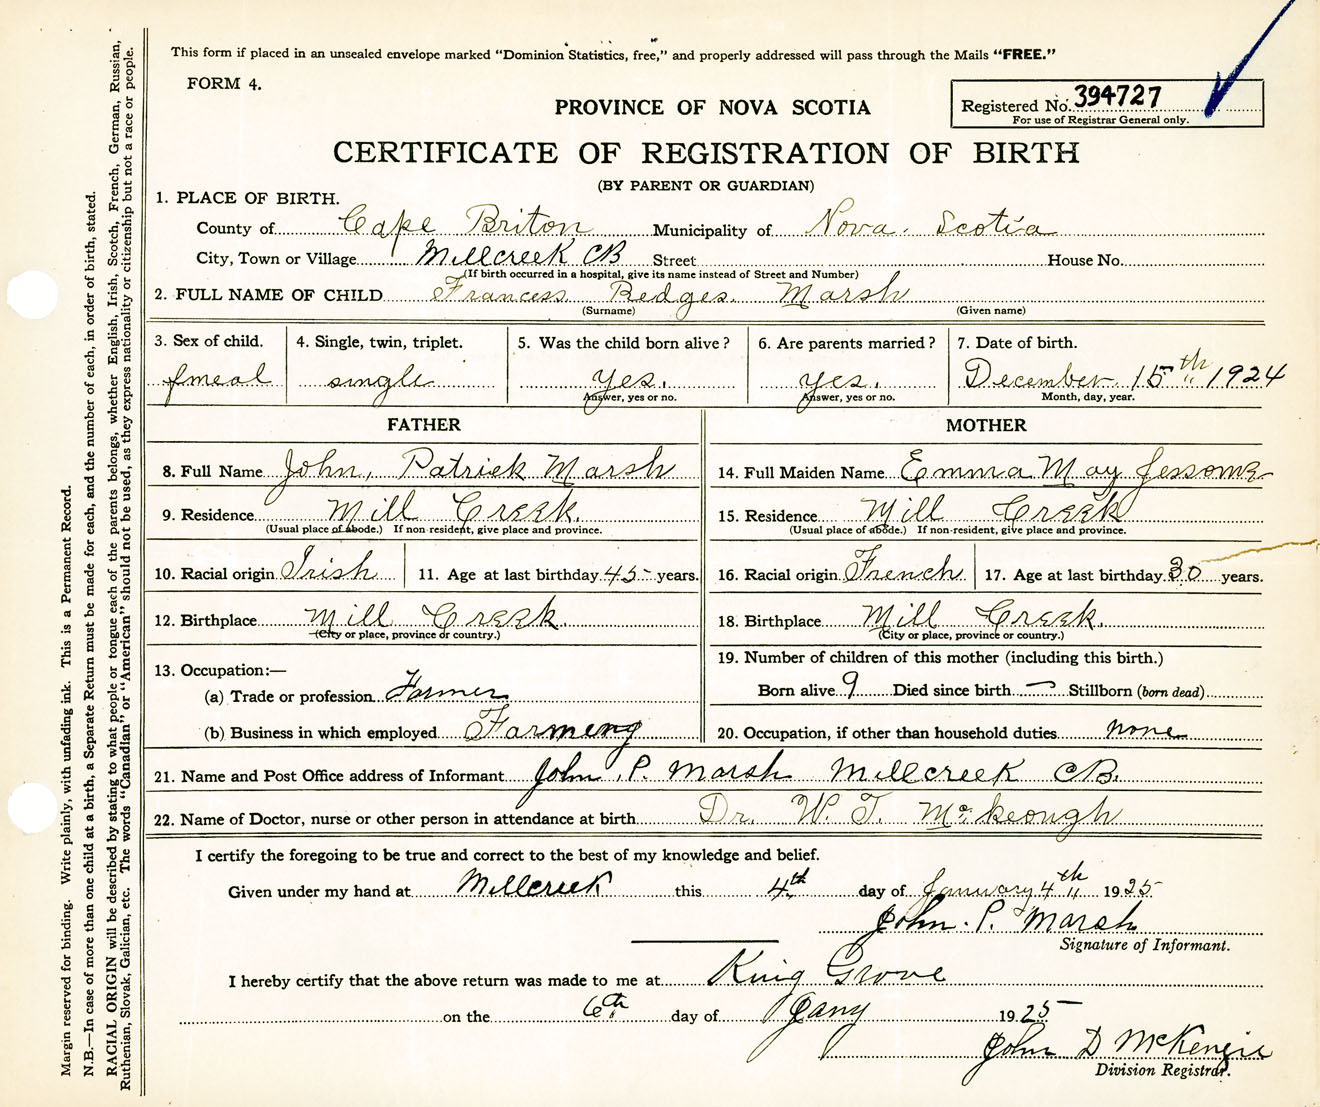 This form if placed in an unsealed envelope marked “Dominion Statistics, free,” and properly addressed will pass through the Mails “FREE.”
FORM 4.
PROVINCE OF NOVA SCOTIA
Registered No. 394727
For use of Registrar General only.
CERTIFICATE OF REGISTRATION OF BIRTH
(BY PARENT OR GUARDIAN)
1. PLACE OF BIRTH.
County of Cape Briton Municipality of Nova. Scotia
City, Town or Village Millcreek CB Street House No.
(If birth occurred in a hospital, give its name instead of Street and Number)
2. FULL NAME OF CHILD Francess Redges. Marsh
(Surname) (Given name)
3. Sex of child. 4. Single, twin, triplet. 5. Was the child born alive? 6. Are parents married? 7. Date of birth.
fmeal single yes. yes. December 15th 1924
Answer, yes or no. Answer, yes or no. Month, day, year.
FATHER MOTHER
8. Full Name John, Patrick Marsh 14. Full Maiden Name Emma May Jessome
9. Residence Mill Creek. 15. Residence Mill Creek
(Usual place of abode.) If non-resident, give place and province. (Usual place of abode.) If non-resident, give place and province.
10. Racial origin Irish 11. Age at last birthday 45 years. 16. Racial origin French 17. Age at last birthday 30 years.
12. Birthplace Mill Creek. 18. Birthplace Mill Creek.
(City or place, province or country.) (City or place, province or country.)
13. Occupation:— 19. Number of children of this mother (including this birth.)
(a) Trade or profession Farmer Born alive 9 Died since birth — Stillborn (born dead)
(b) Business in which employed Farmeng 20. Occupation, if other than household duties none
21. Name and Post Office address of Informant John P. Marsh Millcreek CB.
22. Name of Doctor, nurse or other person in attendance at birth Dr. W. T. McKeough
I certify the foregoing to be true and correct to the best of my knowledge and belief.
Given under my hand at Millcreek this 4th day of January 4th 1925
John. P. Marsh
Signature of Informant.
I hereby certify that the above return was made to me at King Grove
on the 6th day of Jany 1925
John D McKenzie
Division Registrar.
Margin reserved for binding. Write plainly, with unfading ink. This is a Permanent Record.
N.B.—In case of more than one child at a birth, a Separate Return must be made for each, and the number of each, in order of birth, stated.
RACIAL ORIGIN will be described by stating to what people or tongue each of the parents belongs, whether English, Irish, Scotch, French, German, Russian,
Ruthenian, Slovak, Galician, etc. The words “Canadian” or “American” should not be used, as they express nationality or citizenship but not a race or people.